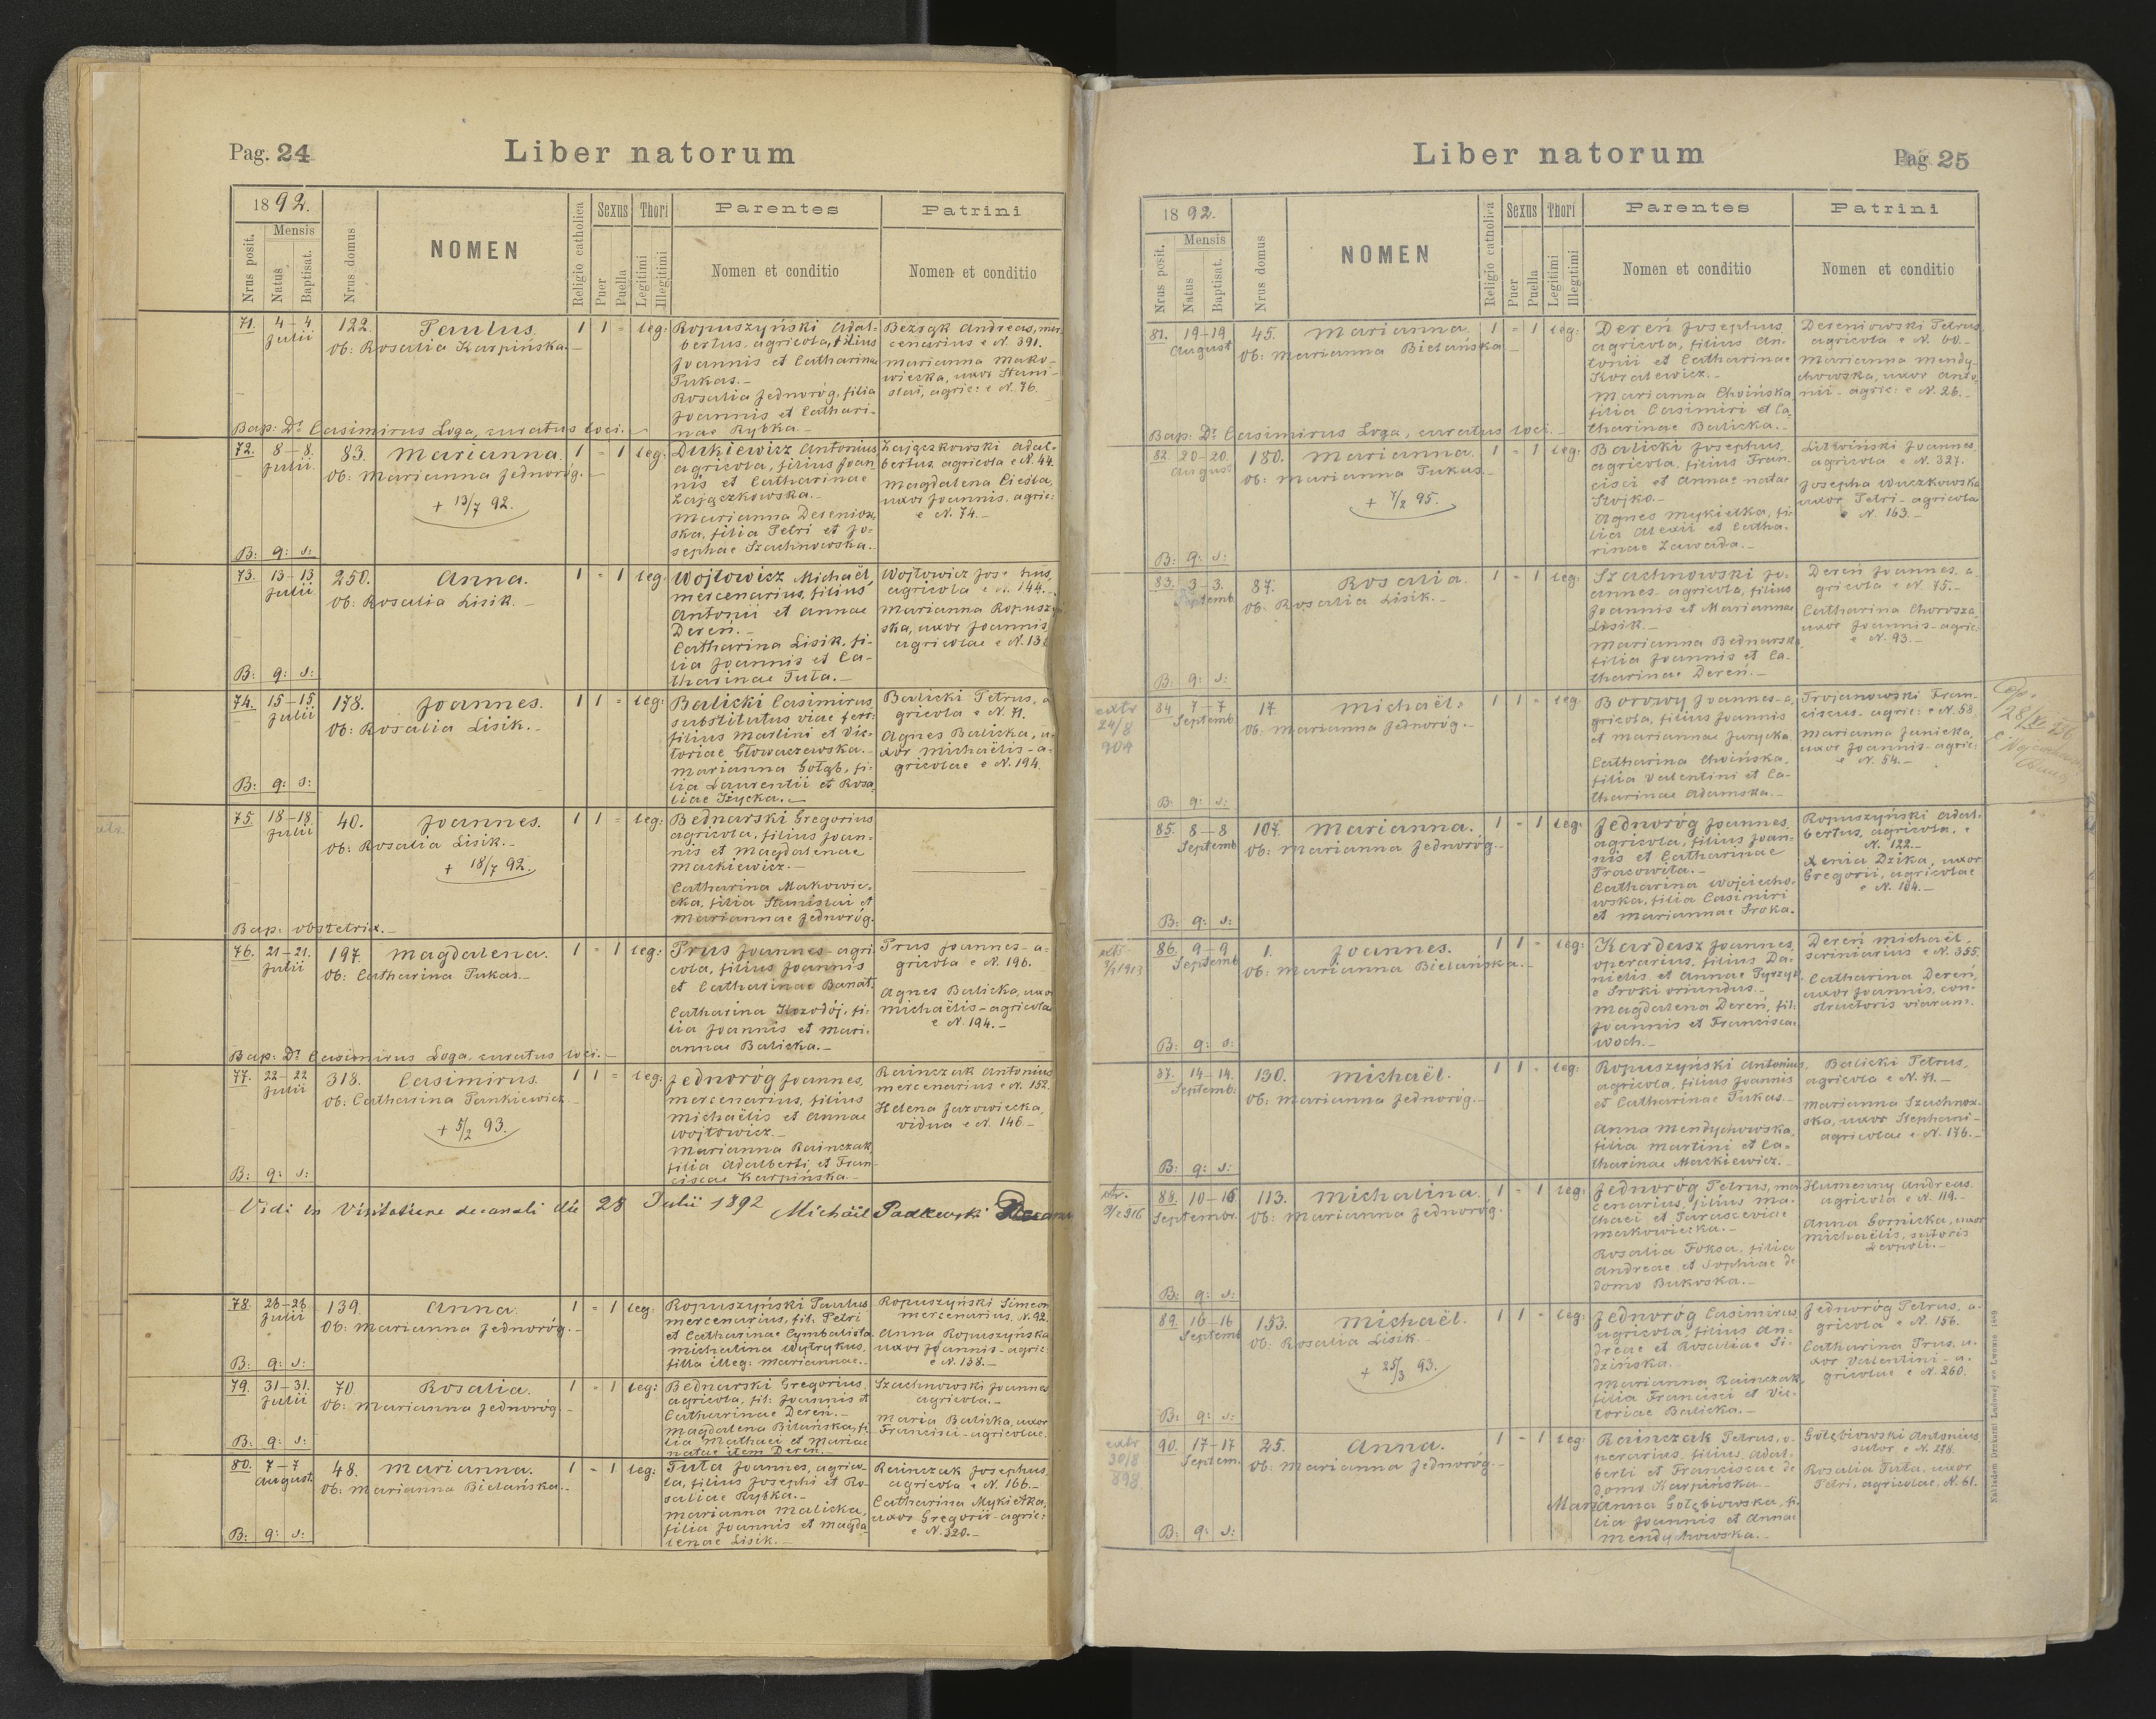 Pag. 24
Liber natorum
1892.
Nrus posit.
Mensis
Natus
Baptisat.
Nrus domus
NOMEN
Religio catholica
Sexus
Puer
Puella
Thori
Legitimi
Illegitimi
Parentes
Nomen et conditio
Patrini
Nomen et conditio
71. 4–4 Julii 122. Paulus. 1 1 = leg:
Ob: Rosalia Karpińska.–
Ropuszyński Adal=
bertus, agricola, filius
Joannis et Catharinae
Pukas.–
Rosalia Jednoróg, filia
Joannis et Cathari-
nae Rybka.–
Bezsąk Andreas, mer-
cenarius e N. 391.
Marianna Mako-
wiecka, uxor Stani-
slai, agric: e N. 76.
Bap: Dr. Casimirus Loga, curatus loci.–
72. 8–8. Julii. 83. Marianna. 1 = 1 leg:
Ob: Marianna Jednoróg.–
+ 13/7 92.
Dukiewicz Antonius
agricola, filius Joan
nis et Catharinae
Zajączkowska.–
Marianna Deseniow-
ska, filia Petri et Jo-
sephae Szachnowska.–
Zajączkowski Adal-
bertus, agricola e N. 44.
Magdalena Cieśla,
uxor Joannis, agric:
e N. 74.–
B: q: s:
73. 13–13. Julii 250. Anna. 1 = 1 leg:
Ob: Rosalia Lisik.–
Wojtowicz Michaël,
mercenarius, filius
Antonii et Annae
Dereń.–
Catharina Lisik, fi-
lia Joannis et Ca-
tharinae Tuta.–
agricola e N. 144.–
ska, uxor Joannis
B: q: s:
74. 15–15. Julii 178. Joannes. 1 1 = leg:
Ob: Rosalia Lisik.–
Balicki Casimirus,
substitutus viae ferr:
filius Martini et Vic-
toriae Głowaczewska.–
Marianna Gołąb, fi-
lia Laurentii et Rosa
liae Iżycka.–
Balicki Petrus, a
gricola e N. 71.
Agnes Balicka, u-
xor Michaëlis - a-
gricolae e N. 194.
B: q: s:
75. 18–18. Julii 40. Joannes. 1 1 = leg:
Ob: Rosalia Lisik.–
+ 18/7 92.
Bednarski Gregorius
agricola, filius Joan-
nis et Magdalenae
Mackiewicz.–
Catharina Makowie-
cka, filia Stanislai et
Mariannae Jednoróg.
Bap: obstetrix.–
76. 21–21. Julii 197. Magdalena. 1 = 1 leg:
Ob: Catharina Pukas.–
Prus Joannes - agri
cola, filius Joannis
et Catharinae Banat.
Catharina Kozodój, fi-
lia Joannis et Mari-
annae Balicka.–
Prus Joannes - a-
gricola e N. 196.
Agnes Balicka, uxor
Michaëlis - agricola
e N. 194.–
Bap: Dr. Casimirus Loga, curatus loci.–
77. 22–22 Julii 318. Casimirus. 1 1 = leg:
Ob: Catharina Pankiewicz.–
+ 5/2 93.
Jednoróg Joannes,
mercenarius, filius
Michaëlis et Annae
Wojtowicz.–
Marianna Rainczak,
filia Adalberti et Fran-
ciscae Karpińska.–
Rainczak Antonius
mercenarius e N. 152.
Helena Jazowiecka,
vidua e N. 146.–
B: q: s:
Vidi in Visitatione decanali die 28 Julii 1892 Michäil
78. 26–26 Julii 139. Anna. 1 = 1 leg:
Ob: Marianna Jednoróg.–
Ropuszyński Paulus
mercenarius, fil: Petri
et Catharinae Cymbalista.
Michalina Wytrykus,
filia illeg: Mariannae.–
Ropuszyński Simeon
mercenarius, N. 92.
Anna Ropuszyńska
uxor Joannis - agric:
e N. 138.–
B: q: s:
79. 31–31. Julii 70. Rosalia. 1 = 1 leg:
Ob: Marianna Jednoróg.–
Bednarski Gregorius,
agricola, fil: Joannis et
Catharinae Dereń.–
Magdalena Bilańska, fi-
lia Mathaei et Mariae
natae item Dereń.–
Szachnowski Joannes
agricola.–
Maria Balicka, uxor
Francisci - agricolae.
B: q: s:
80. 7–7 August. 48. Marianna. 1 = 1 leg:
Ob: Marianna Bielańska.–
Tuta Joannes, agrico-
la, filius Josephi et Ro-
saliae Rybka.–
Marianna Malicka,
filia Joannis et Magda
lenae Lisik.–
Rainczak Josephus
agricola e N. 166.–
Catharina Mykietka,
uxor Gregorii - agric:
e N. 320.–
B: q: s:
Liber natorum
Pag 25
1892.
Nrus posit.
Mensis
Natus
Baptisat.
Nrus domus
NOMEN
Religio catholica
Sexus
Puer
Puella
Thori
Legitimi
Illegitimi
Parentes
Nomen et conditio
Patrini
Nomen et conditio
81. 19–19 August 45. Marianna. 1 = 1 leg:
Ob: Marianna Bielańska.–
Dereń Josephus,
agricola, filius An-
tonii et Catharinae
Koralewicz.–
Marianna Choińska,
filia Casimiri et Ca-
tharinae Balicka.–
Deseniowski Petrus
agricola e N. 60.–
Marianna Mendy-
chowska, uxor Anto-
nii - agric: e N. 26.–
Bap: Dr. Casimirus Loga, curatus loci.–
82. 20–20. August 180. Marianna. 1 = 1 leg:
Ob: Marianna Pukas.–
+ 7/2 95.
Balicki Josephus,
agricola, filius Fran-
cisci et Annae natae
Stojko.–
Agnes Mykietka, fi-
lia Alexii et Catha-
rinae Zawada.–
Litwiński Joannes,
agricola e N. 327.
Josepha Wuczkowska
uxor Petri - agricola
e N. 163.–
B: q: s:
83. 3–3. Septemb. 87. Rosalia. 1 = 1 leg:
Ob: Rosalia Lisik.–
Szachnowski Jo-
annes - agricola, filius
Joannis et Mariannae
Lisik.–
Marianna Bednarska,
filia Joannis et Ca-
tharinae Dereń.–
Dereń Joannes, a-
gricola e N. 75.–
Catharina Chorosza,
uxor Joannis - agric:
e N. 93.–
B: q: s:
extr
24/8
904
84 7–7 Septemb. 17 Michaël. 1 1 = leg
Ob: Marianna Jednoróg.–
Borowy Joannes - a-
gricola, filius Joannis
et Mariannae Jurycka
Catharina Chwińska,
filia Valentini et Ca-
tharinae Adamska.–
Trojanowski Fran-
ciscus - agric: e N. 58
Marianna Janicka,
uxor Joannis - agric:
e N. 54.–
B: q: s:
85. 8–8 Septemb 107. Marianna. 1 = 1 leg:
Ob: Marianna Jednoróg.–
Jednoróg Joannes,
agricola, filius Joan-
nis et Catharinae
Pracowita.–
Catharina Wojciecho-
wska, filia Casimiri
et Mariannae Sroka.
Ropuszyński Adal-
bertus, agricola, e
N. 122.–
Xenia Dzika, uxor
Gregorii, agricolae
e N. 104.–
B: q: s:
86. 9–9 Septemb 1. Joannes. 1 1 = leg:
Ob: Marianna Bielańska.–
Kardasz Joannes,
operarius, filius Da-
nielis et Annae
e Sroki oriundus.–
Magdalena Dereń, fil:
Joannis et Franciscae
Woch.–
Dereń Michaël,
scriniarius e N. 355.
Catharina Dereń,
uxor Joannis, con-
structoris viarum.
B: q: s:
87. 14–14. Septemb: 130. Michaël. 1 1 = leg:
Ob: Marianna Jednoróg.–
Ropuszyński Antonius,
agricola, filius Joannis
et Catharinae Pukas.–
Anna Mendychowska,
filia Martini et Ca-
tharinae Mackiewicz.–
Balicki Petrus,
agricola e N. 71.–
Marianna Szachnow-
ska, uxor Stephani -
agricolae e N. 176.–
B: q: s:
88. 10–16 Septembr. 113. Michalina. 1 = 1 leg:
Ob: Marianna Jednoróg.
Jednoróg Petrus, mer
cenarius, filius Ma-
thaei et Parasceviae
Makowiecka.–
Rosalia Foksa, filia
Andreae et Sophiae de
domo Bukoska.–
Humenny Andreas
agricola e N. 119.–
Anna Gornicka, uxor
Michaëlis, sutoris
Leopoli.–
B: q: s:
89. 16–16 Septemb 153. Michaël. 1 1 = leg:
Ob: Rosalia Lisik.–
+ 25/3 93.
Jednoróg Casimirus,
agricola, filius An-
dreae et Rosaliae Si-
dzińska.–
Marianna Rainczak,
filia Francisci et Vic-
toriae Balicka.–
Jednoróg Petrus, a-
gricola e N. 156.
Catharina Prus, u-
xor Valentini - a-
gricolae e N. 260.
B: q: s:
extr
30/8
898
90. 17–17 Septem. 25. Anna. 1 = 1 leg:
Ob: Marianna Jednoróg.–
Rainczak Petrus, o-
perarius, filius Adal-
berti et Franciscae de
domo Karpińska.–
Marianna Gołębiowska, fi-
lia Joannis et Annae
Mendychowska.–
Gołębiowski Antonius
sutor e N. 278.
Rosalia Tuta, uxor
Petri, agricolae, N. 61.
B: q: s:
Nakładem Drukarni Ludowej we Lwowie 1889